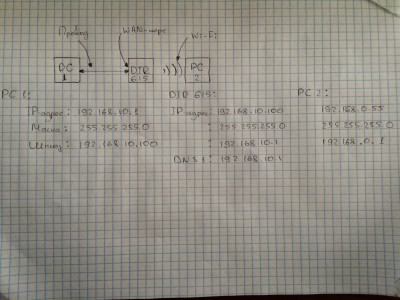 Провод WAN-порт Wi-Fi
PC 1 DIR 615 PC 2
PC 1: DIR 615: PC 2:
IP адрес: 192.168.10.1 IP адрес: 192.168.10.100 192.168.0.55
Маска: 255.255.255.0 : 255.255.255.0 255.255.255.0
Шлюз: 192.168.10.100 : 192.168.10.1 192.168.0.1
DNS 1: 192.168.10.1